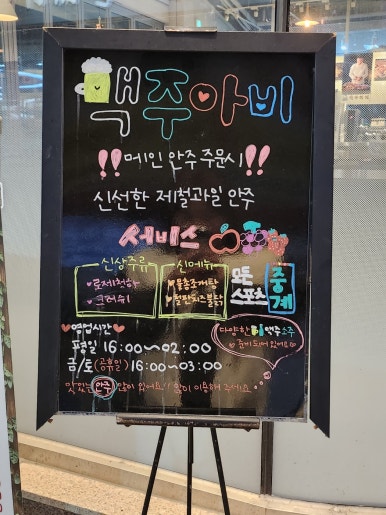 맥주아비
!! 메인 안주 주문시 !!
신선한 제철과일 안주
서비스
신상주류
♥로제청하
♥크러쉬
신메뉴
♥물총조개탕
♥철판치즈불닭
모든
스포츠
중계
♥영업시간♥
평일 16:00~02:00
금/토(공휴일)16:00~03:00
다양한 맥주소주
준비되어있어요
맛있는 안주 많이 있어요!! 많이 이용해 주세요